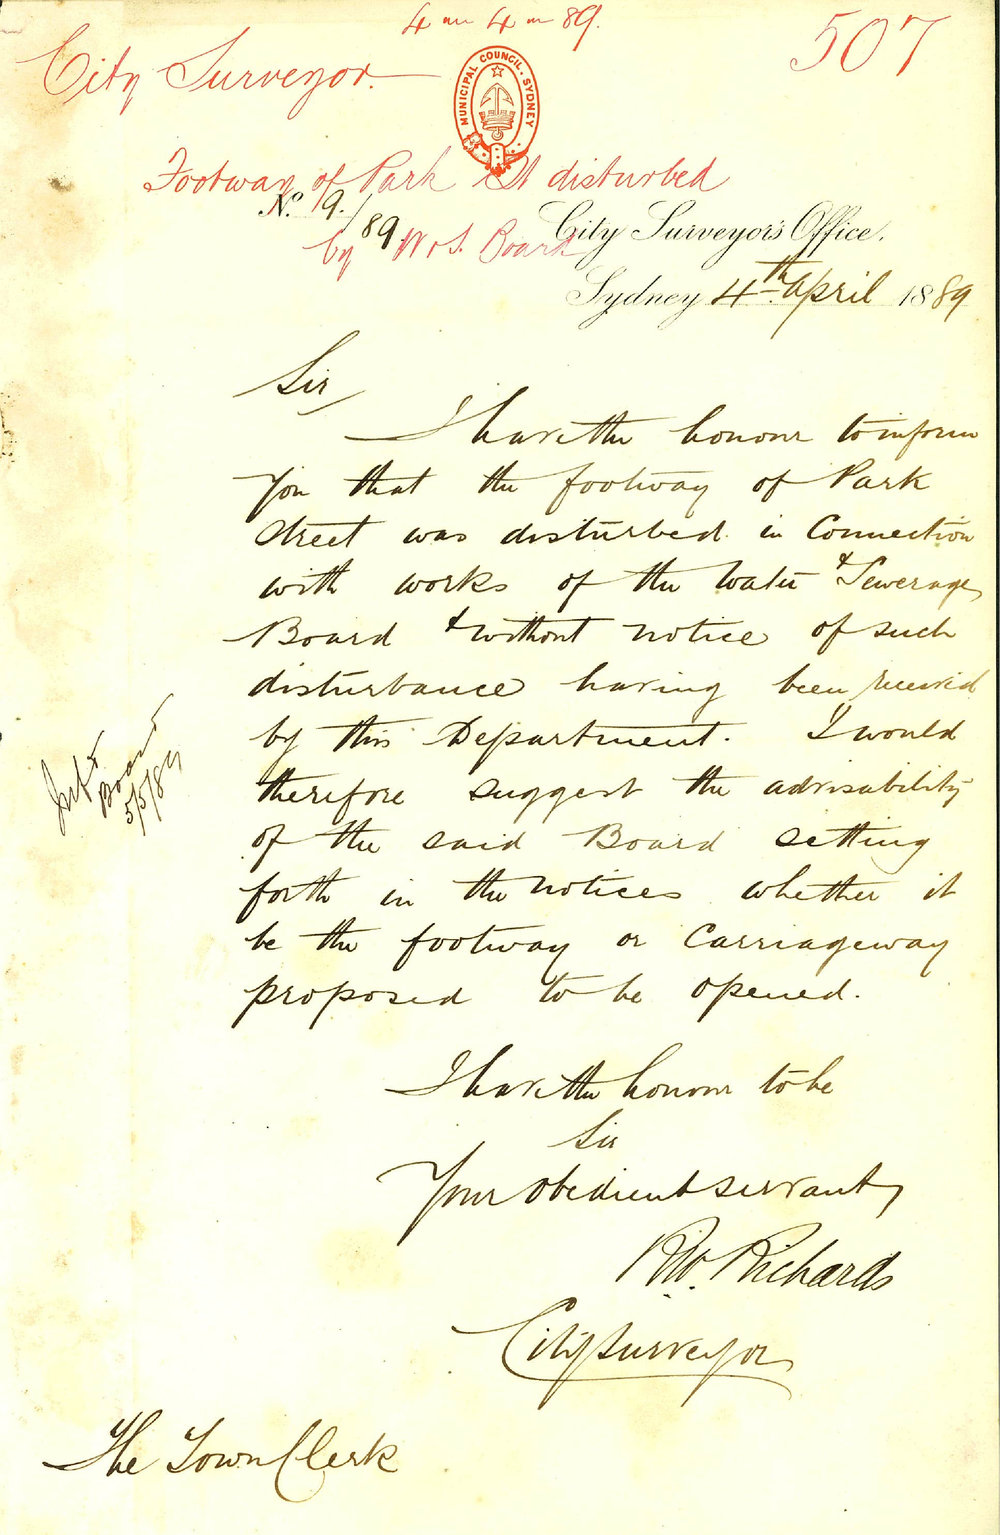 4 4 89.
507
City Surveyor.
MUNICIPAL COUNCIL. SYDNEY
Footway of Park St disturbed
No. 19./89.
by W & S. Board
City Surveyor's Office.
Sydney 4th April 1889
Sir
I have the honour to inform
you that the footway of Park
Street was disturbed in connection
with works of the Water & Sewerage
Board & without notice of such
disturbance having been received
by this Department. I would
therefore suggest the advisability
of the said Board setting
forth in the notices whether it
be the footway or carriageway
proposed to be opened.
Board
5/5/89
I have the honour to be
Sir
Your obedient servant
Richards
City Surveyor
The Town Clerk